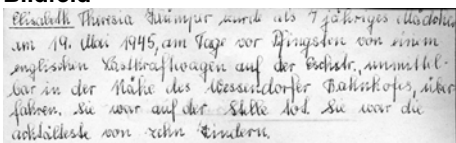 Elisabeth Theresia Kümper wurde als 7 jähriges Mädchen
am 19. Mai 1945, am Tage vor Pfingsten von einem
englischen Lastkraftwagen auf der Eschstr., unmittel-
bar in der Nähe des Wessendorfer Bahnhofes, über-
fahren. Sie war auf der Stelle tot. Sie war die
achtälteste von zehn Kindern.